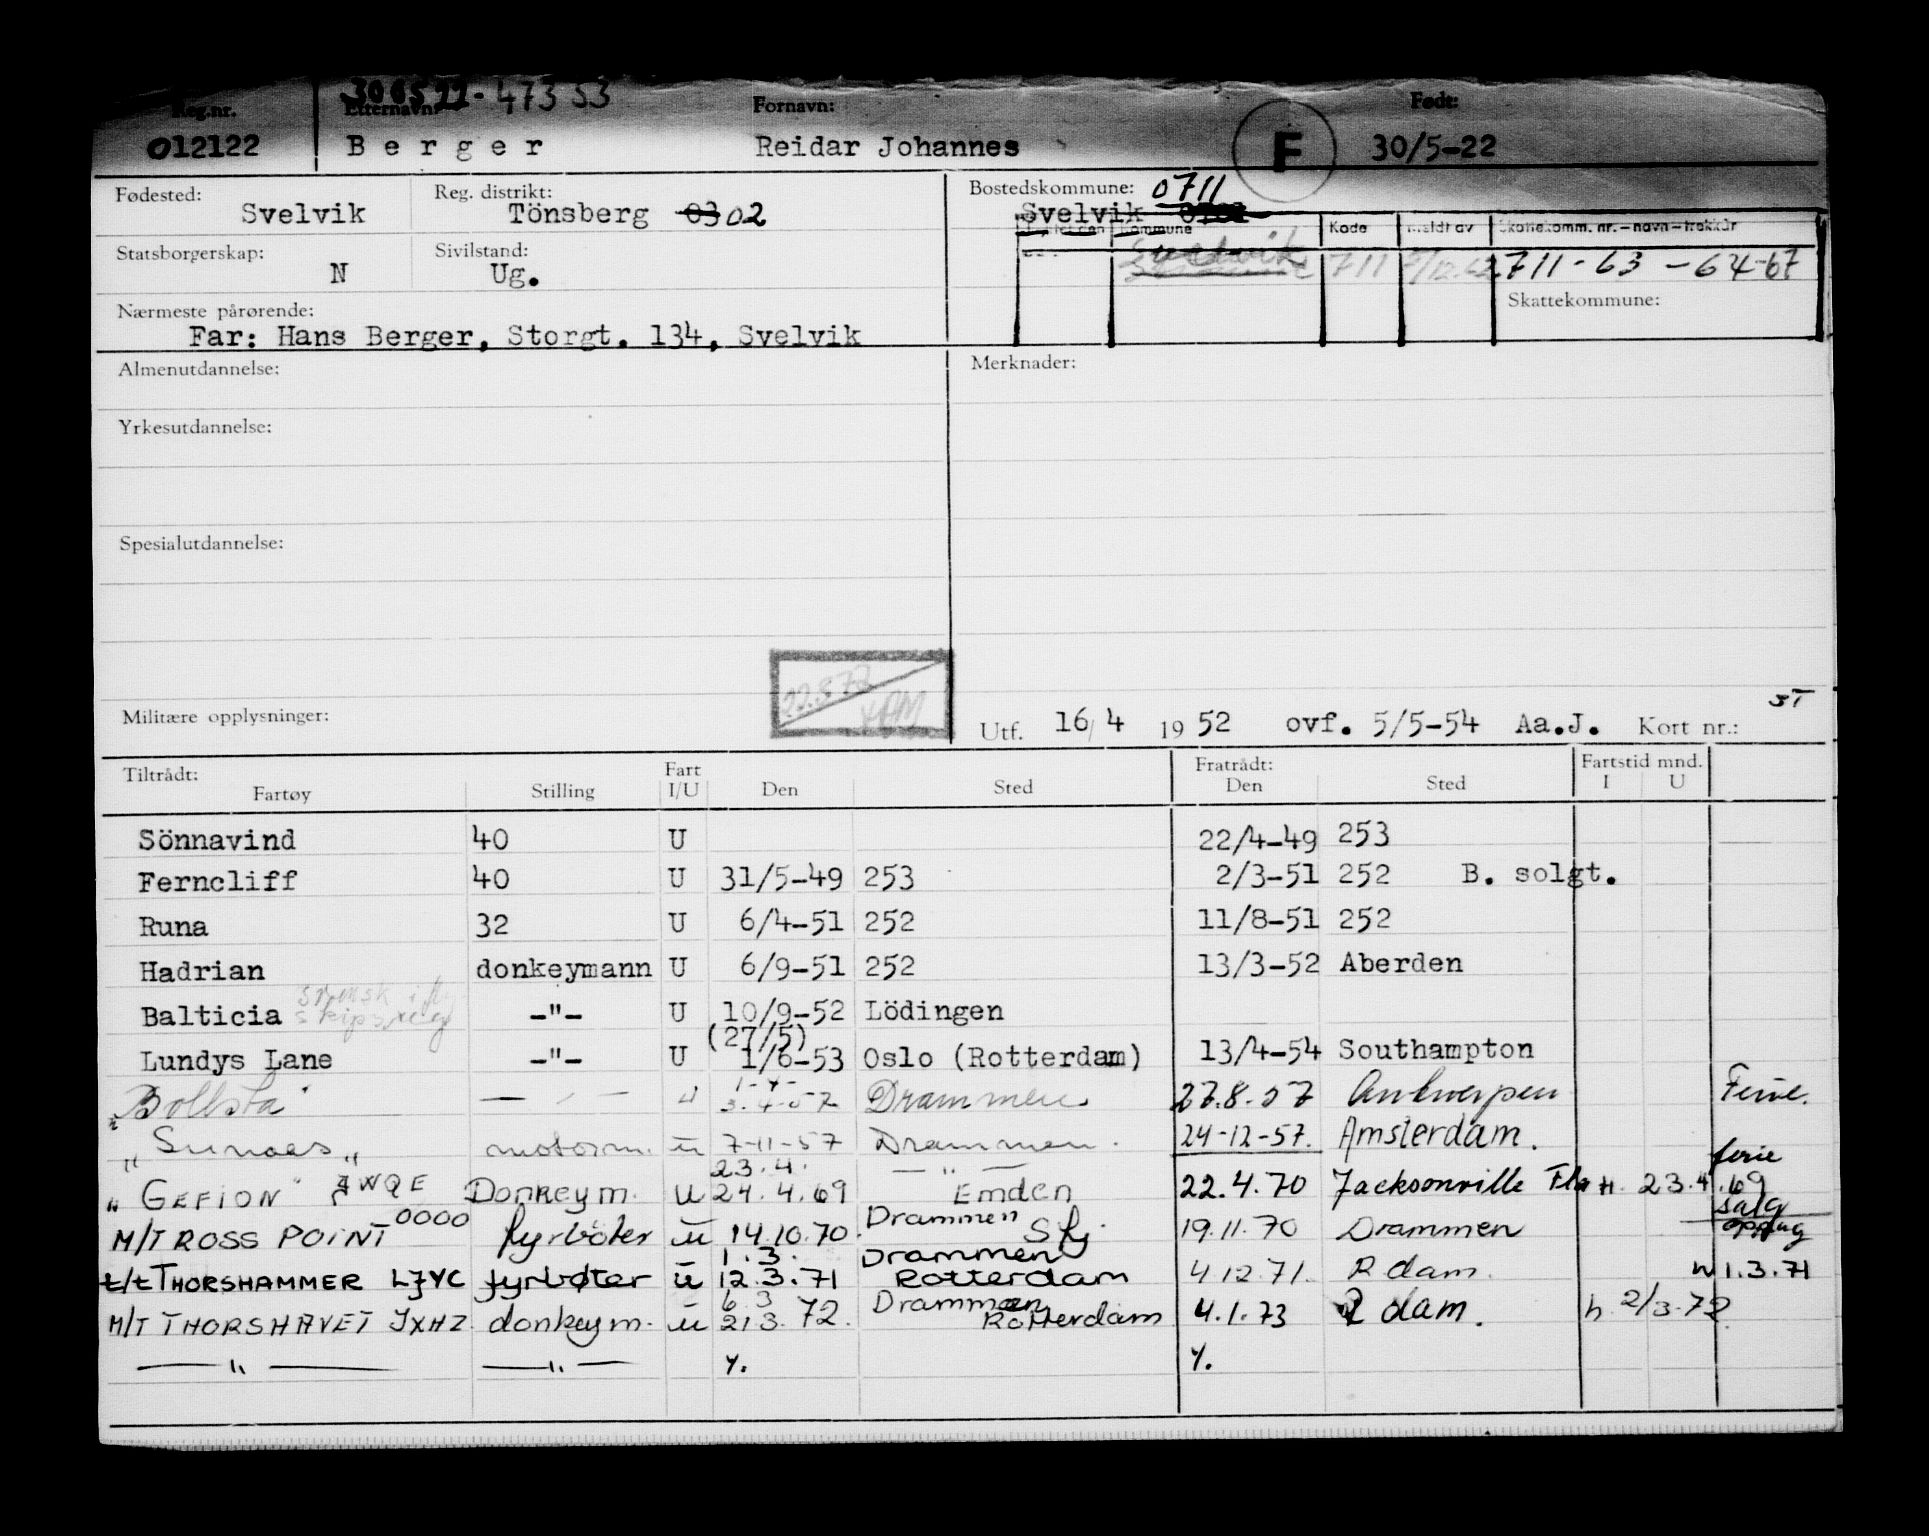 300522-47353
Reg.nr. Etternavn: Fornavn: Født:
012122 Berger Reidar Johannes F 30/5-22
Fødested: Reg. distrikt: Bostedskommune: 0711
Svelvik Tönsberg 03 02 Svelvik
Kommune Kode Meldt av Skattekomm. nr. - navn - trekkår
Statsborgerskap: Sivilstand: Svelvik 711 711-63-64-67
N Ug. Skattekommune:
Nærmeste pårørende:
Far: Hans Berger, Storgt. 134, Svelvik
Almenutdannelse: Merknader:
Yrkesutdannelse:
Spesialutdannelse:
Militære opplysninger: Utf. 16/4 1952 ovf. 5/5-54 Aa.J. Kort nr.: ST
Tiltrådt: Fart Fratrådt: Fartstid mnd.
Fartøy Stilling I/U Den Sted Den Sted I U
Sönnavind 40 U 22/4-49 253
Ferncliff 40 U 31/5-49 253 2/3-51 252 B. solgt.
Runa 32 U 6/4-51 252 11/8-51 252
Hadrian donkeymann U 6/9-51 252 13/3-52 Aberden
Balticia -"- U 10/9-52 Lödingen
(27/5)
Lundys Lane -"- U 1/6-53 Oslo (Rotterdam) 13/4-54 Southampton
"Bollsta" — " — U 3.4-57 Drammen 27.8.57 Antwerpen Ferie.
"Sunaas" motorm. u 7-11-57 Drammen. 24-12-57. Amsterdam.
23.4. — " — ferie
"GEFION" Donkeym. u 24.4.69 Emden 22.4.70 Jacksonville Fla H. 23.4.69
0000 Drammen salg
M/T ROSS POINT fyrböter u 14.10.70. 19.11.70 Drammen oppsug
1.3. Drammen
t/t THORSHAMMER LJYC fyrbøter u 12.3.71 Rotterdam 4 12.71. R dam. h 1.3.71
6.3 Drammen
M/T THORSHAVET JXHZ donkeym. u 21.3.72. Rotterdam 4.1.73 R dam. h 2/3-72
— " — — " — Y. Y.